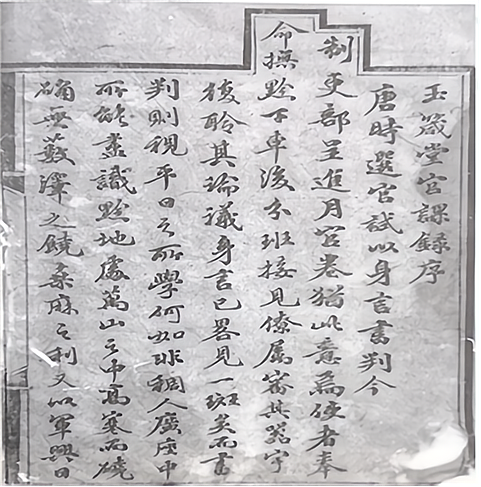 玉箴堂官課錄序
唐時選官試以身言書判今
制吏部呈進月官卷猶此意為使者奉
命撫黔下車後分班接見僚屬審其器宇
復聆其論議身言已畧見一斑矣而書
判則視平日之所學何如非稠人廣座中
所能盡識黔地處萬山之中高寒而磽
确無藪澤之饒桑麻之利又以軍興日